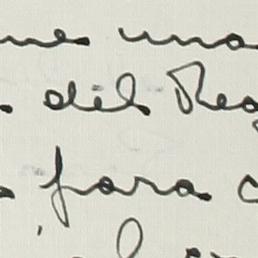 me una
del Rea
para c